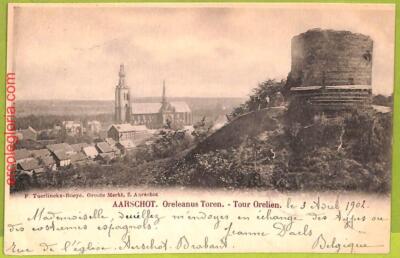 ercolegloria
F. Tuerlinckx-Boeyé, Groote Markt, 2, Aarschot
AARSCHOT. Oreleanus Toren. - Tour Orelien.
le 3 Août 1902.
Mademoiselle, veuillez m'envoyer en échange des types ou
des costumes espagnols. Jeanne Daels
rue de l'église Aerschot. Brabant. Belgique